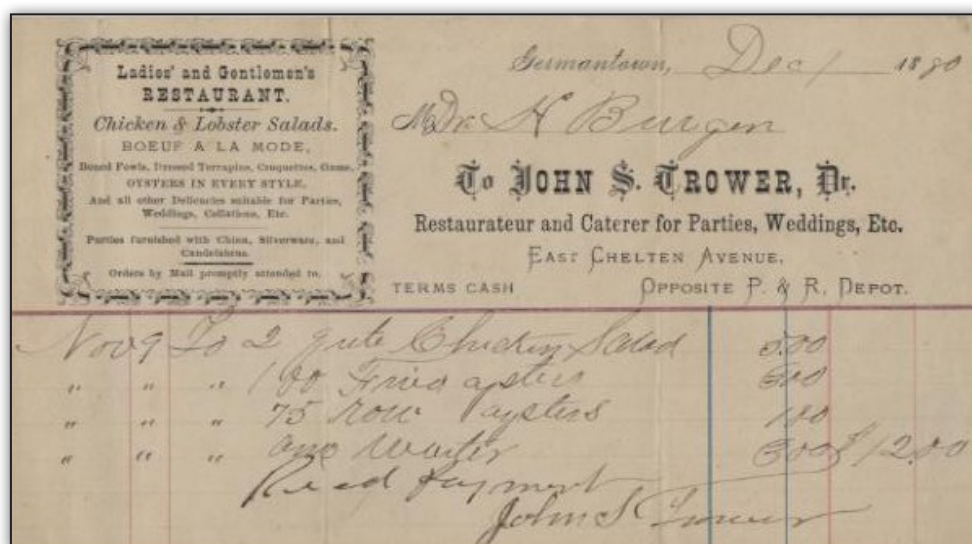 Ladies' and Gentlemen's
RESTAURANT.
Chicken & Lobster Salads.
BOEUF A LA MODE,
Boned Fowls, Dressed Terrapins, Croquettes, Game,
OYSTERS IN EVERY STYLE,
And all other Delicacies suitable for Parties,
Weddings, Collations, Etc.
Parties furnished with China, Silverware, and
Candelabras.
Orders by Mail promptly attended to.
Germantown, Dec 1 1880
M Dr. H Burgen
To JOHN S. TROWER, Dr.
Restaurateur and Caterer for Parties, Weddings, Etc.
EAST CHELTEN AVENUE,
TERMS CASH OPPOSITE P. & R. DEPOT.
Nov 9 To 2 Chicken Salad 5.00
" " " 100 Fried oysters
" " " 75 Row oysters
" " " one Waiter $12.00
Recd payment
John S Trower